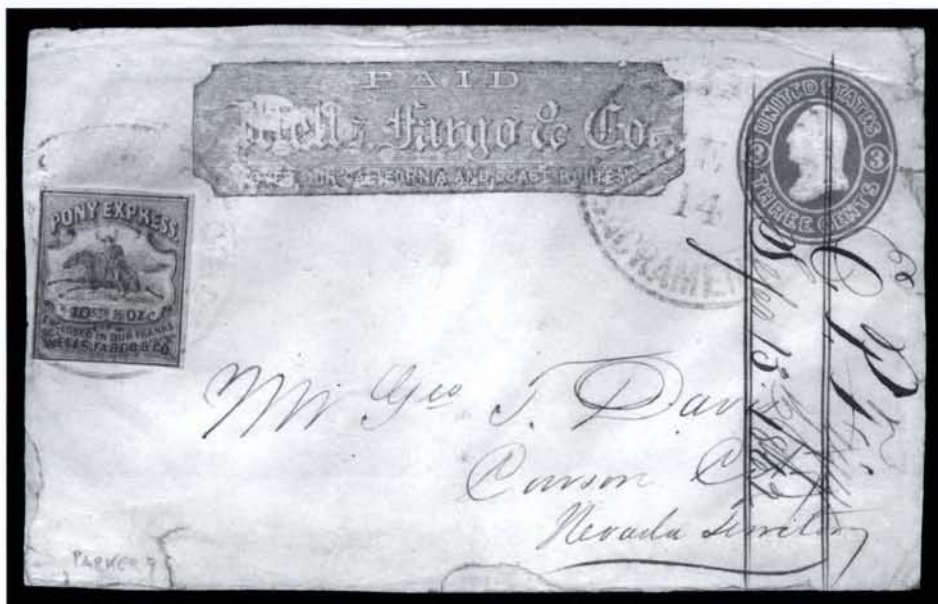 PAID
Wells, Fargo & Co.
OVER OUR CALIFORNIA AND COAST ROUTES
UNITED STATES
3 3
THREE CENTS
14
SACRAMEN
PONY EXPRESS
10 Cts ½ OZ
ENCLOSED IN OUR FRANKS
WELLS, FARGO & CO.
Mr Geo T. Davis
Carson City
Nevada Territory
Feb 13
PARKER